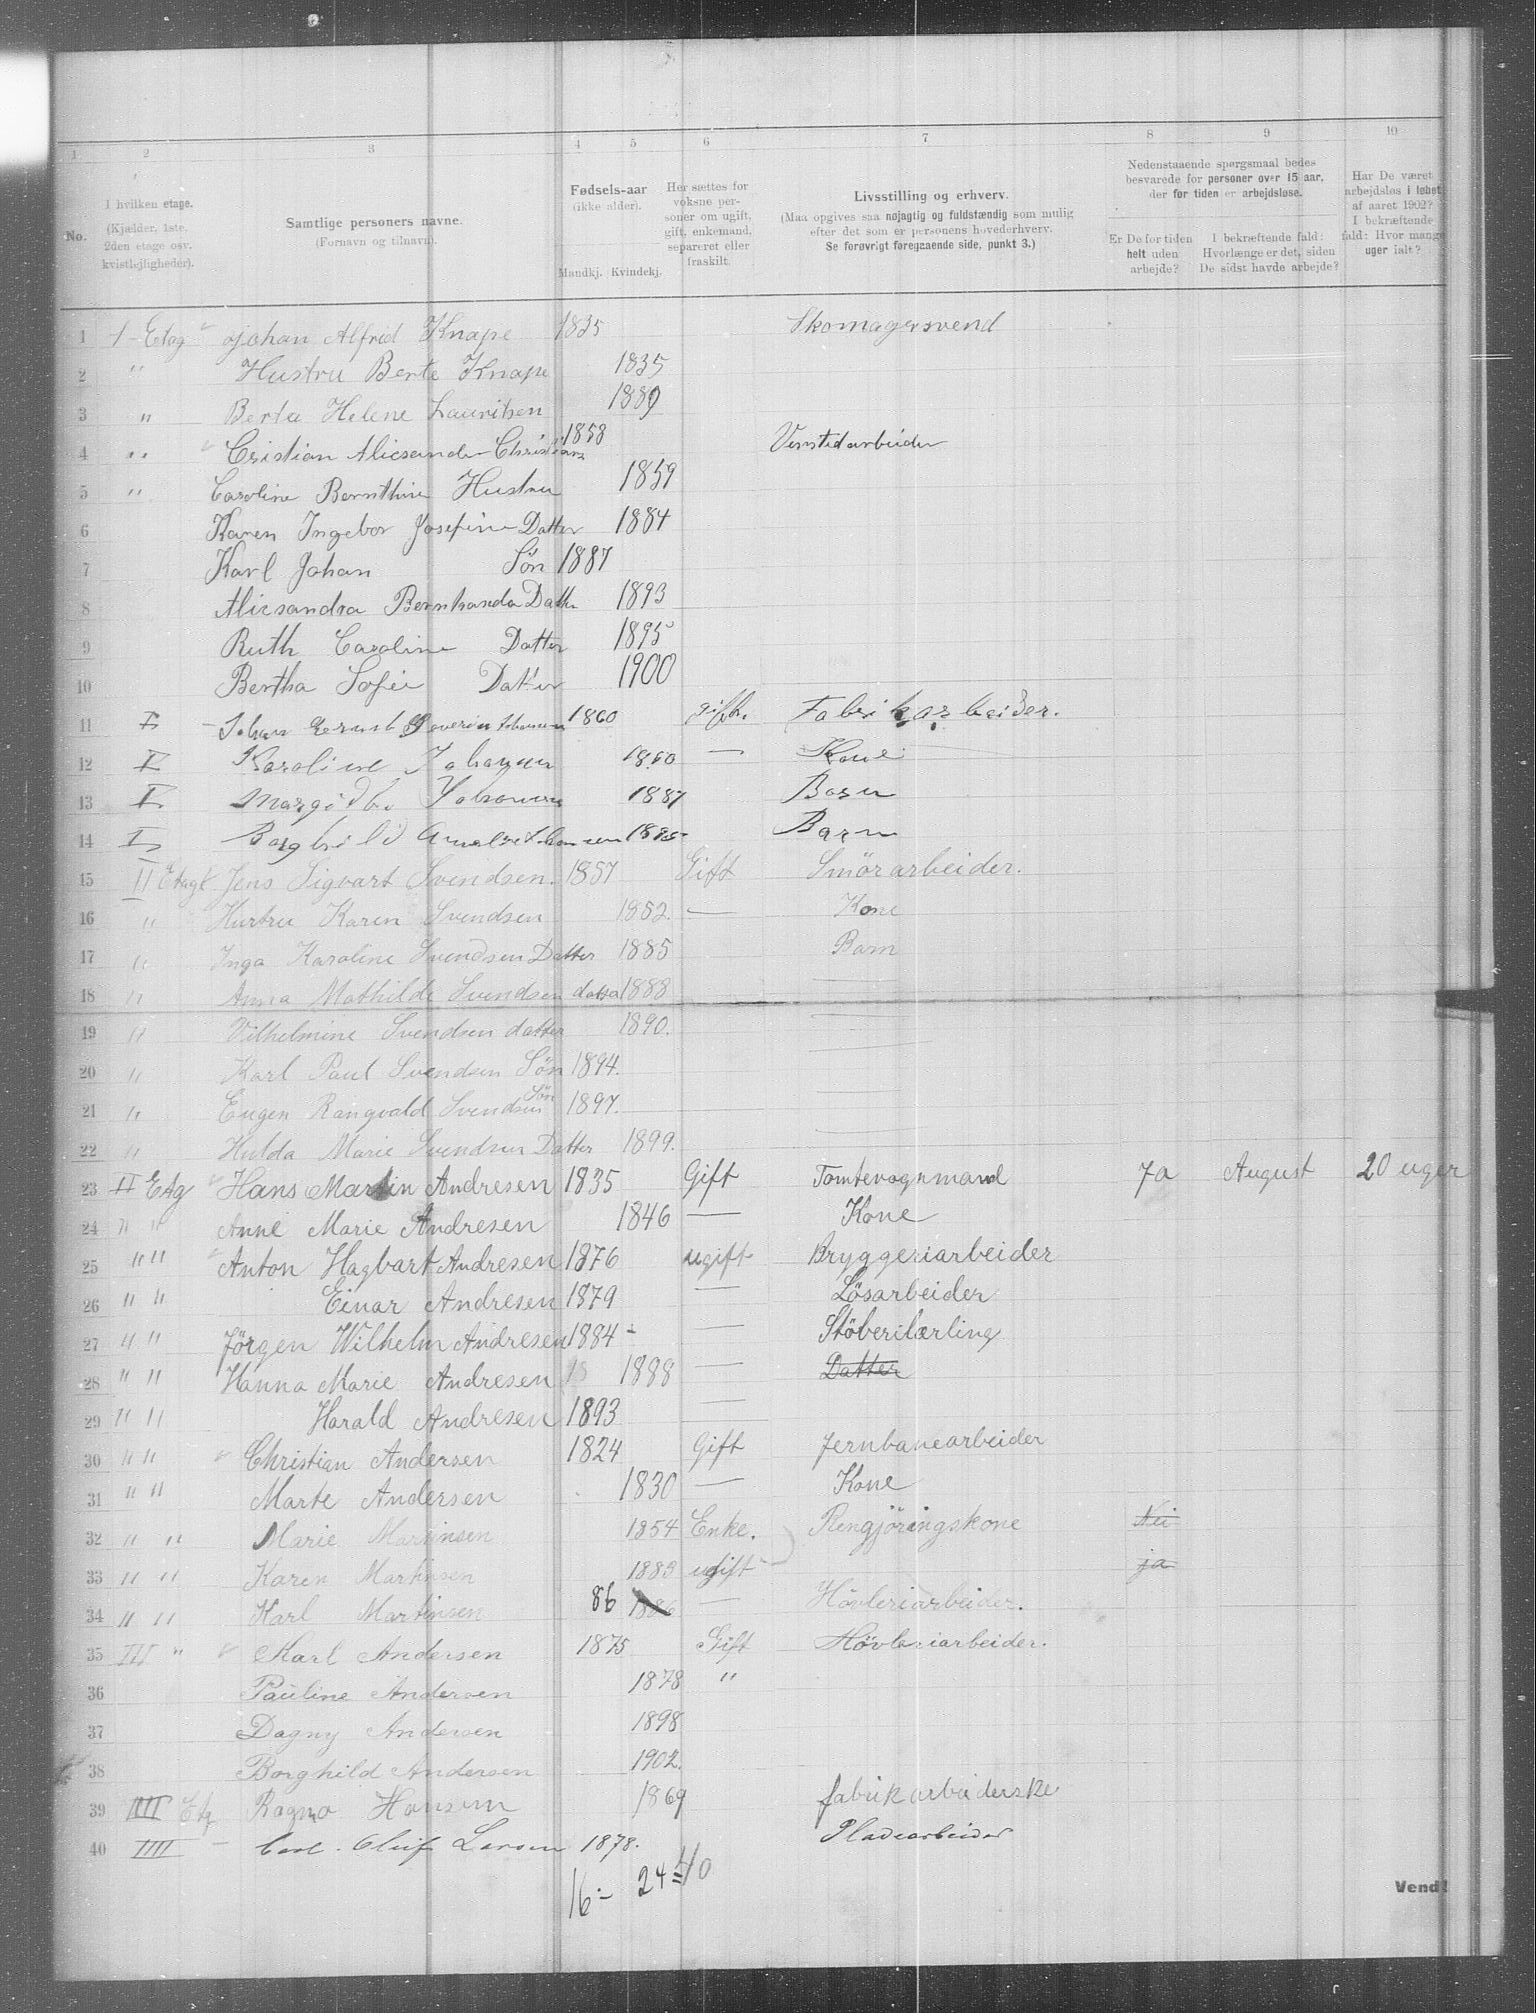 1 2 3 4 5 6 7 8 9 10
No.
I hvilken etage.
(Kjælder, 1ste, 2den etage osv. kvistlejligheder).
Samtlige personers navne.
(Fornavn og tilnavn).
Fødsels-aar
(ikke alder).
Mandkj. Kvindekj.
Her sættes for voksne personer om ugift, gift, enkemand, separeret eller fraskilt.
Livsstilling og erhverv.
(Maa opgives saa nøjagtig og fuldstændig som mulig efter det som er personens hovederhverv.
Se forøvrigt foregaaende side, punkt 3.)
Nedenstaaende spørgsmaal bedes besvarede for personer over 15 aar, der for tiden er arbejdsløse.
Er De for tiden helt uden arbejde?
I bekræftende fald: Hvorlænge er det, siden De sidst havde arbejde?
Har De været arbejdsløs i løbet af aaret 1902? I bekræftende fald: Hvor mange uger ialt?
1 1 Etag Johan Alfred Knape 1835 Skomagersvend
2 " Hustru Berte Knape 1835
3 " Berta Helene Lauritsen 1889
4 " Cristian Alicsander Christians 1858 Verstedarbeider
5 " Caroline Bernthine Hustru 1859
6 Karen Ingebor Josefine Datter 1884
7 Karl Johan Søn 1887
8 Alicsandra Bernhanda Datter 1893
9 Ruth Caroline Datter 1895
10 Bertha Sofie Datter 1900
11 I Johan Ernst Severin Johansen 1860 gift. Fabrikarbeider.
12 I Karoline Johansen 1860 — Kone
13 I Margidthe Johansen 1887 Barn
14 I Borghild Johansen Barn
15 II Etage Jens Sigvart Svendsen. 1857 Gift Smörarbeider.
16 " Hustru Karen Svendsen 1852. — Kone
17 " Inga Karoline Svendsen Datter 1885 Barn
18 " Anna Mathilde Svendsen datter 1888
19 " Vilhelmine Svendsen datter 1890.
20 " Karl Paul Svendsen Søn 1894.
21 " Eugen Rangvald Svendsen Søn 1897.
22 " Hulda Marie Svendsen Datter 1899.
23 II Etg Hans Martin Andresen 1835 Gift Tomtevognmand Ja August 20 uger
24 " " Anne Marie Andresen 1846 — Kone
25 " " Anton Hagbart Andresen 1876 ugift Bryggeriarbeider
26 " " Einar Andresen 1879 — Lösarbeider
27 " " Jörgen Wilhelm Andresen 1884 — Stöberilærling
28 " " Hanna Marie Andresen 18 1888 — Datter
29 " " Harald Andresen 1893 —
30 " " Christian Andersen 1824 Gift Jernbanearbeider
31 " " Marte Andersen 1830 — Kone
32 " " Marie Martinsen 1854 Enke. Rengjöringskone Nei
33 " " Karen Martinsen 1883 ugift ja
34 " " Karl Martinsen 86 1886 — Hövleriarbeider.
35 III " Karl Andersen 1875 Gift Hövleriarbeider.
36 Pauline Andersen 1878 "
37 Dagny Andersen 1898
38 Borghild Andersen 1902.
39 IIII Etg Ragna Hansen 1869 fabrikarbeiderske
40 IIII — Carl Oluf Larsen 1878. Pladearbeider
16 - 24 = 40
Vend!